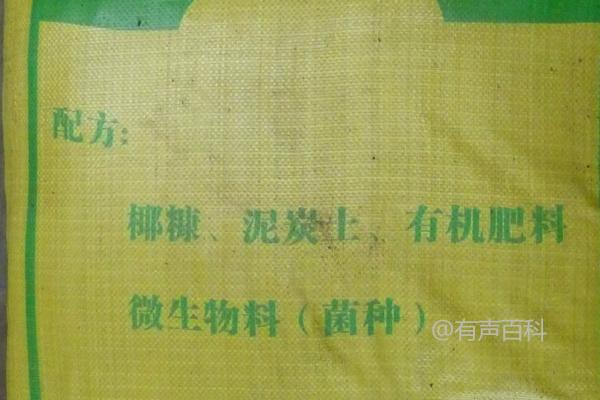 配方:
椰糠、泥炭土、有机肥料
微生物料(菌种)
@有声百科